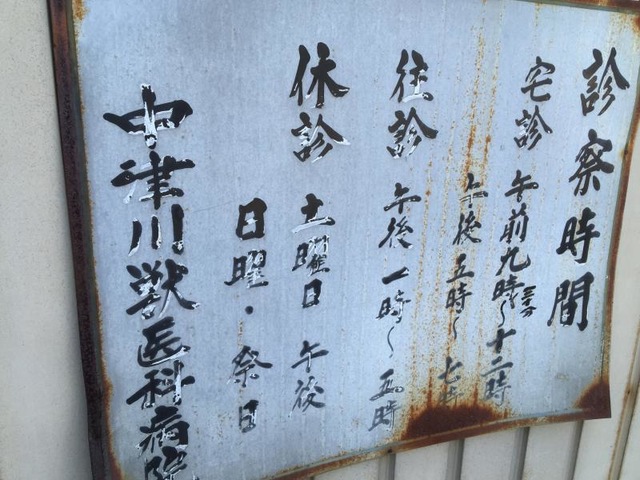 診察時間
宅診 午前九時三十分〜十二時
午後五時〜七時
往診 午後一時〜五時
休診 土曜日 午後
日曜・祭日
中津川獣医科病院